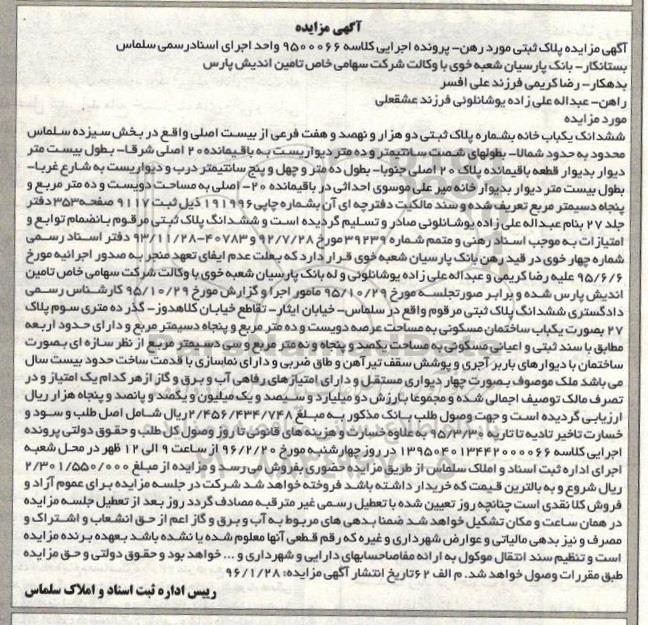 آگهی مزایده
آگهی مزایده پلاک ثبتی مورد رهن- پرونده اجرایی کلاسه ۹۵۰۰۰۶۶ واحد اجرای اسناد رسمی سلماس
بستانکار- بانک پارسیان شعبه خوی با وکالت شرکت سهامی خاص تامین اندیش پارس
بدهکار- رضا کریمی فرزند علی افسر
راهن- عبداله علی زاده یوشانلوئی فرزند عشقعلی
مورد مزایده
ششدانگ یکباب خانه بشماره پلاک ثبتی دو هزار و نهصد و هفت فرعی از بیست اصلی واقع در بخش سیزده سلماس
محدود به حدود شمالا- بطولهای شصت سانتیمتر و ده متر دیواریست به باقیمانده ۲۰ اصلی شرقا- بطول بیست متر
دیوار بدیوار قطعه باقیمانده پلاک ۲۰ اصلی جنوبا- بطول ده متر و چهل و پنج سانتیمتر درب و دیواریست به شارع غربا-
بطول بیست متر دیوار بدیوار خانه میر علی موسوی احداثی در باقیمانده ۲۰- اصلی به مساحت دویست و ده متر مربع و
پنجاه دسیمتر مربع تعریف شده و سند مالکیت دفترچه ای آن بشماره چاپی ۱۹۱۹۹۶ ذیل ثبت ۹۱۱۷ صفحه ۳۵۳ دفتر
جلد ۲۷ بنام عبداله علی زاده یوشانلوئی صادر و تسلیم گردیده است و ششدانگ پلاک ثبتی مرقوم بانضمام توابع و
امتیازات به موجب اسناد رهنی و متمم شماره ۳۹۲۳۹ مورخ ۹۲/۷/۲۸ و ۴۰۷۸۳-۹۳/۱۱/۲۸ دفتر اسناد رسمی
شماره چهار خوی در قید رهن بانک پارسیان شعبه خوی قرار دارد که بعلت عدم ایفای تعهد منجر به صدور اجرائیه مورخ
۹۵/۶/۶ علیه رضا کریمی و عبداله علی زاده یوشانلوئی و له بانک پارسیان شعبه خوی با وکالت شرکت سهامی خاص تامین
اندیش پارس شده و برابر صورتجلسه مورخ ۹۵/۱۰/۲۹ مامور اجرا و گزارش مورخ ۹۵/۱۰/۲۹ کارشناس رسمی
دادگستری ششدانگ پلاک ثبتی مرقوم واقع در سلماس- خیابان ایثار- تقاطع خیابان کلاهدوز- گذر ده متری سوم پلاک
۲۷ بصورت یکباب ساختمان مسکونی به مساحت عرصه دویست و ده متر مربع و پنجاه دسیمتر مربع و دارای حدود اربعه
مطابق با سند ثبتی و اعیانی مسکونی به مساحت یکصد و پنجاه و نه متر مربع و سی دسیمتر مربع از نظر سازه ای بصورت
ساختمان با دیوارهای باربر آجری و پوشش سقف تیر آهن و طاق ضربی و دارای نماسازی با قدمت ساخت حدود بیست سال
می باشد ملک موصوف بصورت چهار دیواری مستقل و دارای امتیازهای رفاهی آب و برق و گاز از هر کدام یک امتیاز و در
تصرف مالک توصیف اجمالی شده و مجموعا بارزش دو میلیارد و سیصد و یک میلیون و یکصد و پانصد و پنجاه هزار ریال
ارزیابی گردیده است و جهت وصول طلب بانک مذکور به مبلغ ۲/۴۵۶/۴۳۴/۷۴۸ ریال شامل اصل طلب و سود و
خسارت تاخیر تادیه تا تاریخ ۹۵/۳/۳۰ به علاوه خسارت و هزینه های قانونی تا روز وصول کل طلب و حقوق دولتی پرونده
اجرایی کلاسه ۱۳۹۵۰۴۰۱۳۴۴۲۰۰۰۰۶۶ در روز چهارشنبه مورخ ۹۶/۲/۲۰ از ساعت ۹ الی ۱۲ ظهر در محل شعبه
اجرای اداره ثبت اسناد و املاک سلماس از طریق مزایده حضوری بفروش می رسد و مزایده از مبلغ ۲/۳۰۱/۵۵۰/۰۰۰
ریال شروع و به بالاترین قیمت که خریدار داشته باشد فروخته خواهد شد شرکت در جلسه مزایده برای عموم آزاد و
فروش کلا نقدی است چنانچه روز تعیین شده با تعطیل رسمی غیر مترقبه مصادف گردد روز بعد از تعطیل جلسه مزایده
در همان ساعت و مکان تشکیل خواهد شد ضمنا بدهی های مربوط به آب و برق و گاز اعم از حق انشعاب و اشتراک و
مصرف و نیز بدهی مالیاتی و عوارض شهرداری و غیره که رقم قطعی آنها معلوم شده یا نشده باشد بعهده برنده مزایده
است و تنظیم سند انتقال موکول به ارائه مفاصاحسابهای دارایی و شهرداری و ... خواهد بود و حقوق دولتی و حق مزایده
طبق مقررات وصول خواهد شد. م الف ۶۲ تاریخ انتشار آگهی مزایده: ۹۶/۱/۲۸
رییس اداره ثبت اسناد و املاک سلماس